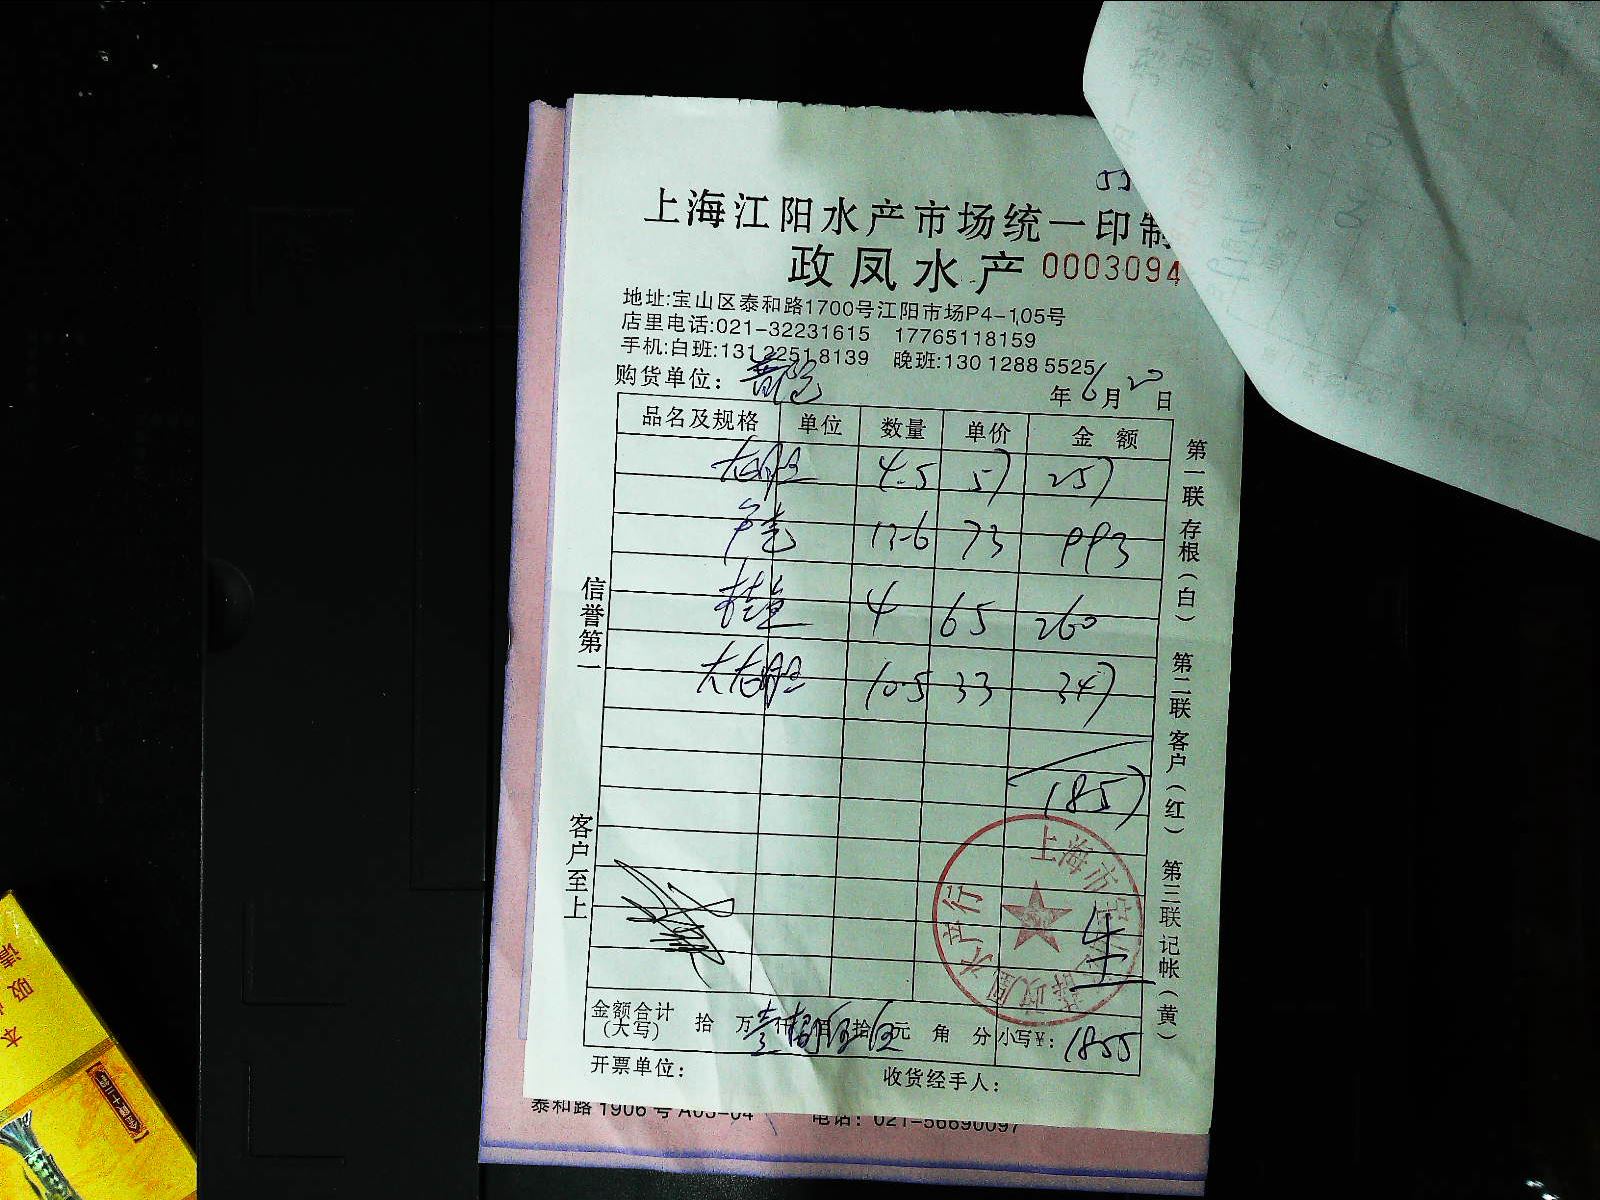 上海江阳水产市场统一印制
政凤水产 0003094
地址:宝山区泰和路1700号江阳市场P4-105号
店里电话:021-32231615 17765118159
手机:白班:131 2251 8139 晚班:130 1288 5525
购货单位: 年 6 月 20 日
品名及规格 单位 数量 单价 金额
4.5 57 257
13.6 73 993
桂鱼 4 65 260
10.5 33 347
1857
信誉第一
客户至上
第一联存根(白)
第二联客户(红)
第三联记帐(黄)
上海市
水产行
金额合计(大写) 拾 万 壹仟 捌佰 伍拾 伍元 角 分 小写¥: 1855
开票单位: 收货经手人:
泰和路 1906 号 A03-04 电话: 021-56690097